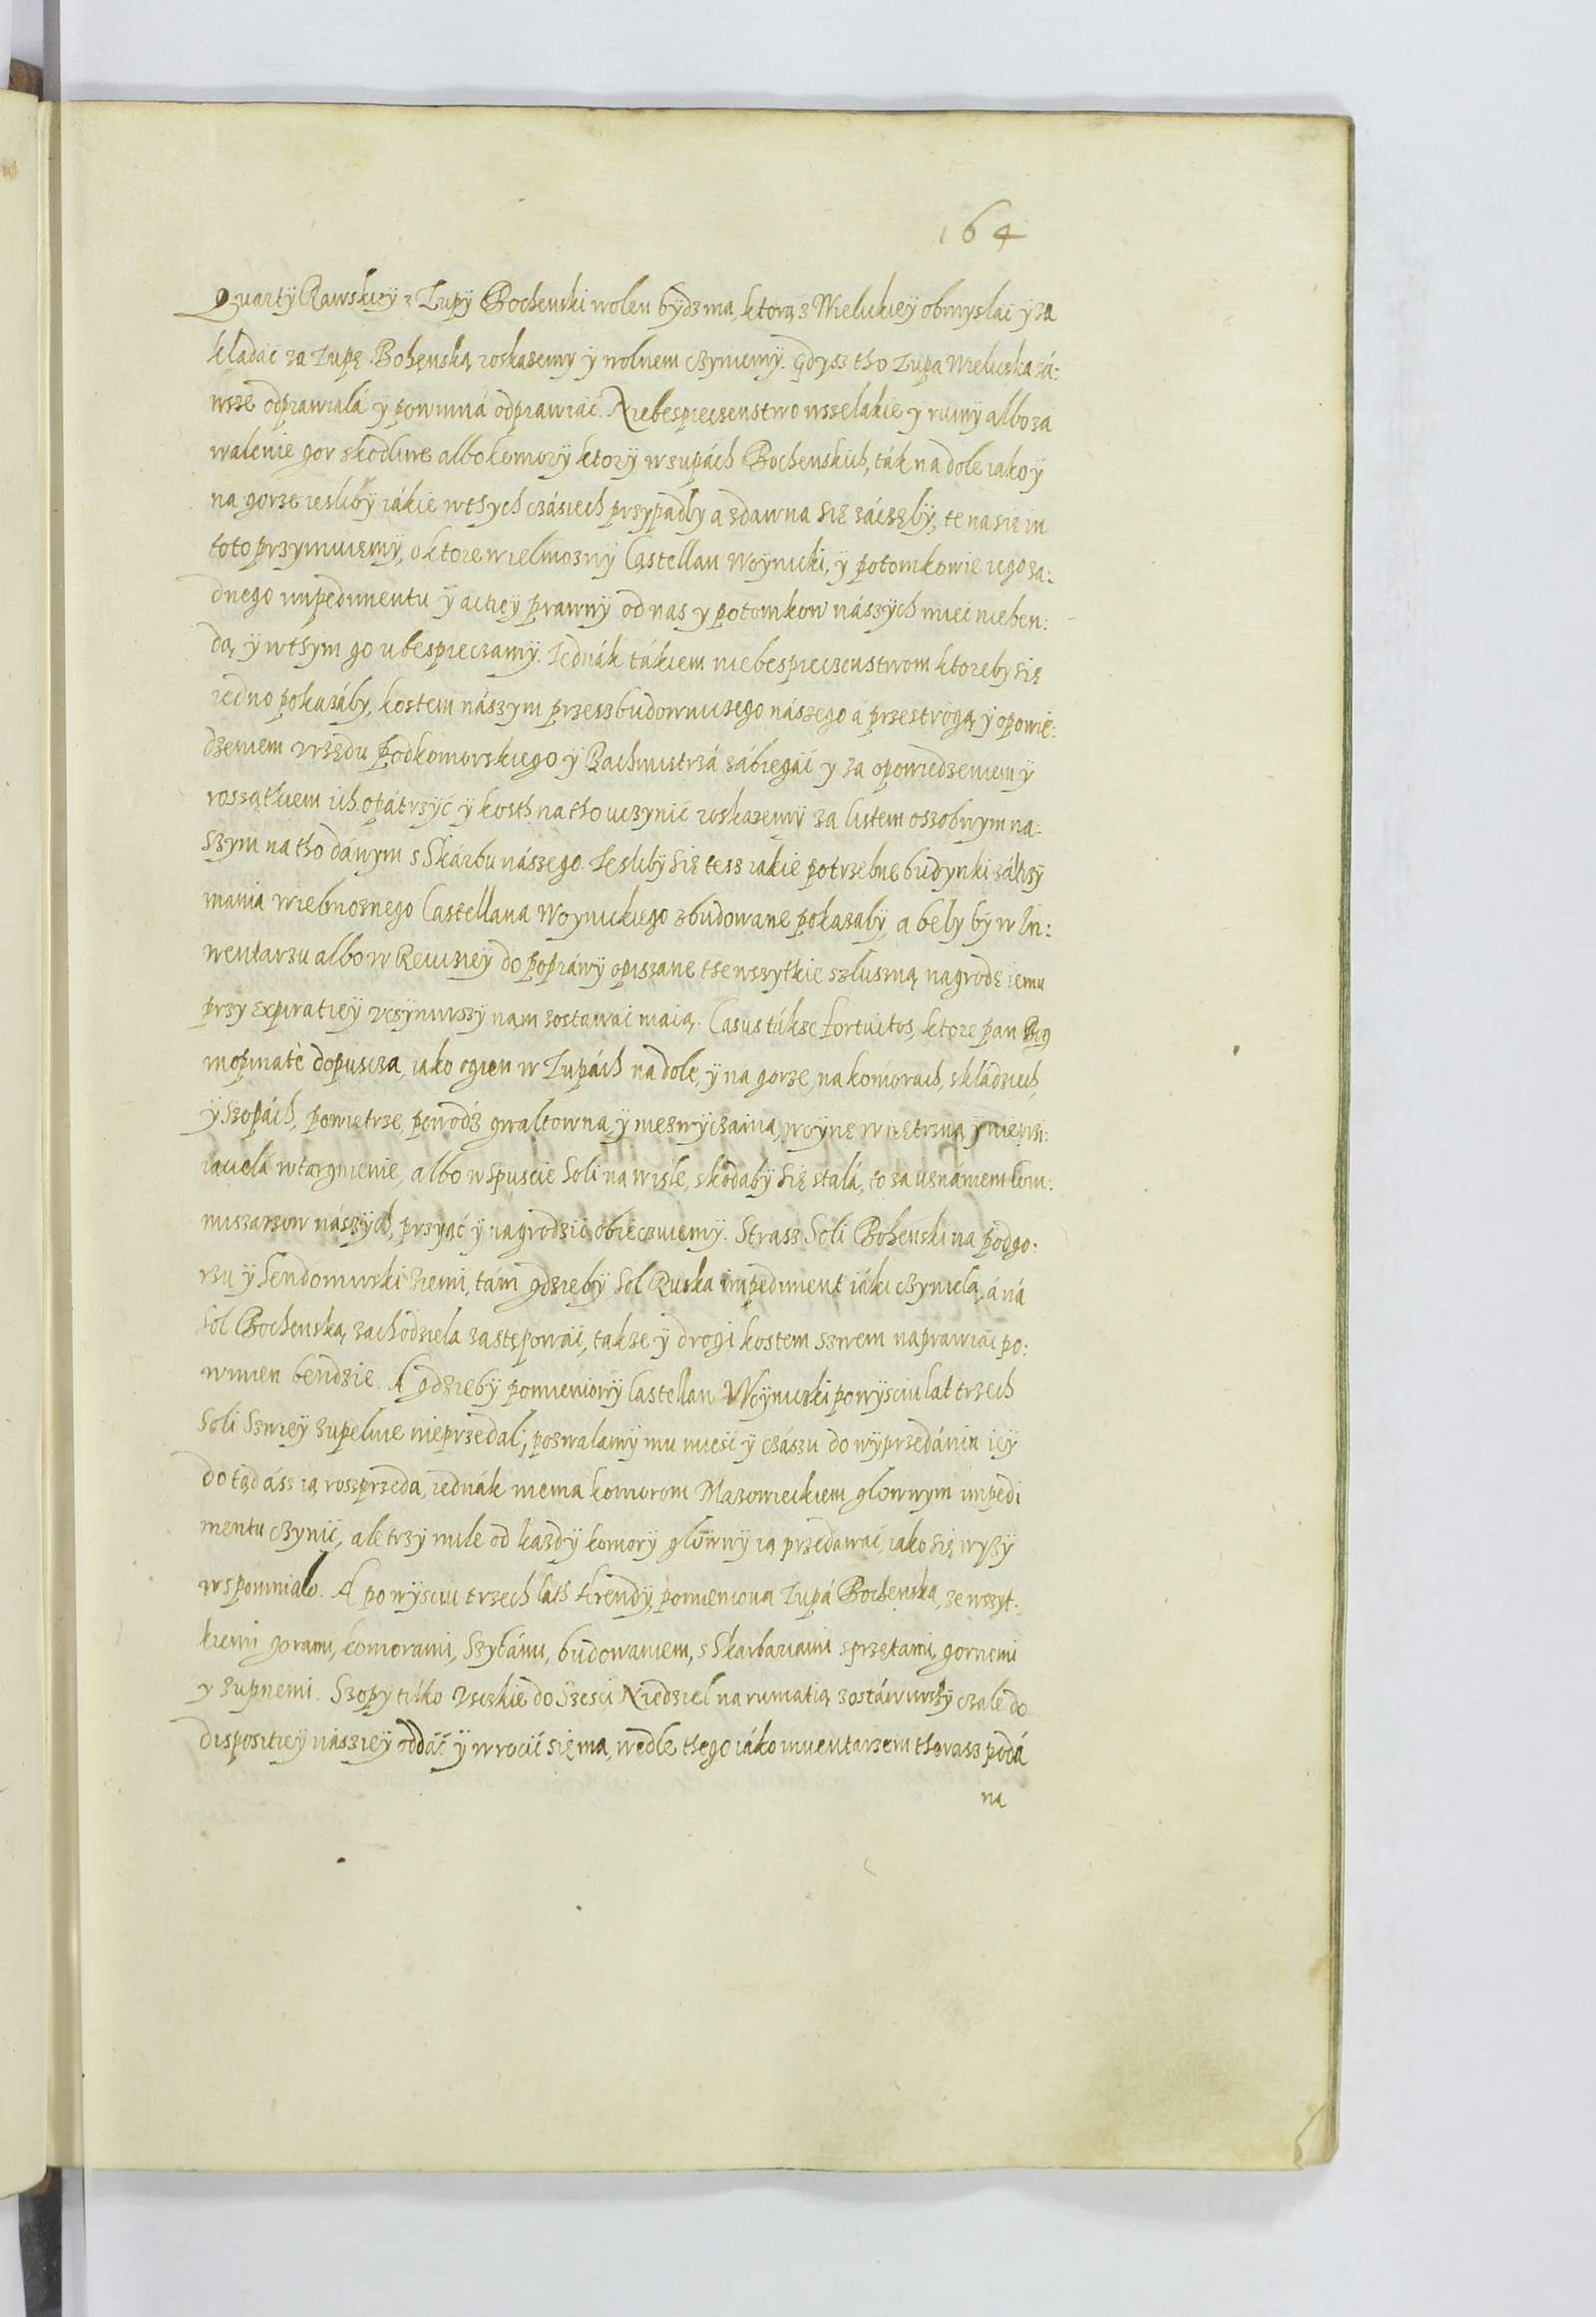 164
Qvartÿ Rawskieÿ z Zupÿ Bochenski wolen bÿdz ma, ktorą z Wielickieÿ obmyslac ÿ za
kladac za Zupę Bohęnską roskazemy ÿ wolnem czyniemÿ. Gdysz tho Zupa Wieliczka zá:
wsze odprawialá ÿ powinná odprawiac. Niebespieczenstwo wsselakie y ruinÿ albo za
walenie gor skodliwe albo komorÿ ktorÿ w zupách Bochenskich, ták na dole iako ÿ
na gorze iesliby iákie w thych czásiech przypadly a zdawna się záczęlÿ, te na się in
toto przymuiemÿ, o ktore wielmoznÿ Castellan Woÿnicki, ÿ potomkowie iego za:
dnego impedimentu ÿ acticÿ prawnÿ od nas y potomkow nászÿch miec nieben:
dą, ÿ w thym go ubespieczamÿ. Iednák tákiem niebespieczenstwom ktoreby się
iedno pokazály, kostem nászym przesz budowniczego nászego á przestrogą ÿ opowie:
dzeniem Vrzędu podkomorskiego ÿ Bachmistrzá zábiegác y za opowiedzeniem ÿ
rossątkiem ich opátrzÿc ÿ kosth na tho uczynic roskazemÿ za listem oszobnym na:
szym na tho dánym s Skárbu nászego. Ięslibÿ się tesz iakie potrzebne budynki zá trzÿ
mania wiebnoznego Castellana Woynickiego zbudowane pokazalÿ, a bely bÿ w In:
wentarzu albo w Reuizieÿ do poprawÿ opiszane the wszytkie szluszną nagrodę iemu
przy expiratieÿ vczÿniwszÿ nam zostawac maią. Casus tákze fortuitos, ktore pan Bog
inopinatè dopuscza, iako ogien w Zupách na dole, ÿ na gorze, na komorach, skládziech,
ÿ szopách, powietrze, powódz gwaltowna, ÿ niezwÿczaina, woÿnę wnętrzną ÿ niepre:
iacielá wtargnienie, albo w spuscie Soli na wisle, skodabÿ się stalá, to za uznániem kom:
miszarzow nászÿch, przyąc ÿ nagrodzic obieczuiemÿ. Strasz Soli Bohenski na podgo:
rzu ÿ Sendomirski ziemi, tám gdziebÿ Sol Ruska impediment iáki czyniela, á ná
Sol Bochenską zachodziela zastępowac, takze ÿ drogi kostem szwem naprawiac po:
winien bendzie. A gdziebÿ pomienionÿ Castellan Woÿnicki po wÿsciu lat trzech
Soli szwieÿ zupelnie nieprzedal, pozwalamÿ mu miesc ÿ czászu do wÿprzedánia ieÿ
dotąd ász ią roszprzeda, iednák niema komorom Mazowieckiem glownym impedi
mentu czynic, ale trzÿ mile od kazdÿ komorÿ glownÿ ią przedawac, iako się wyzÿ
wspomnialo. A po wÿsciu trzech lath Arendÿ, pomieniona Zupá Bochenska, ze wszyt:
kiemi gorami, komorami, Szybámi, budowaniem, s Skarbarami sprzętami, gornemi
y zupnemi. Szopÿ tilko Vsckie do Szesci Niedziel na rumatią zostáwiwszÿ czale do
dispositieÿ nászieÿ oddác ÿ wrocic się ma, wedle thego iáko inuentarzem therasz podá
na